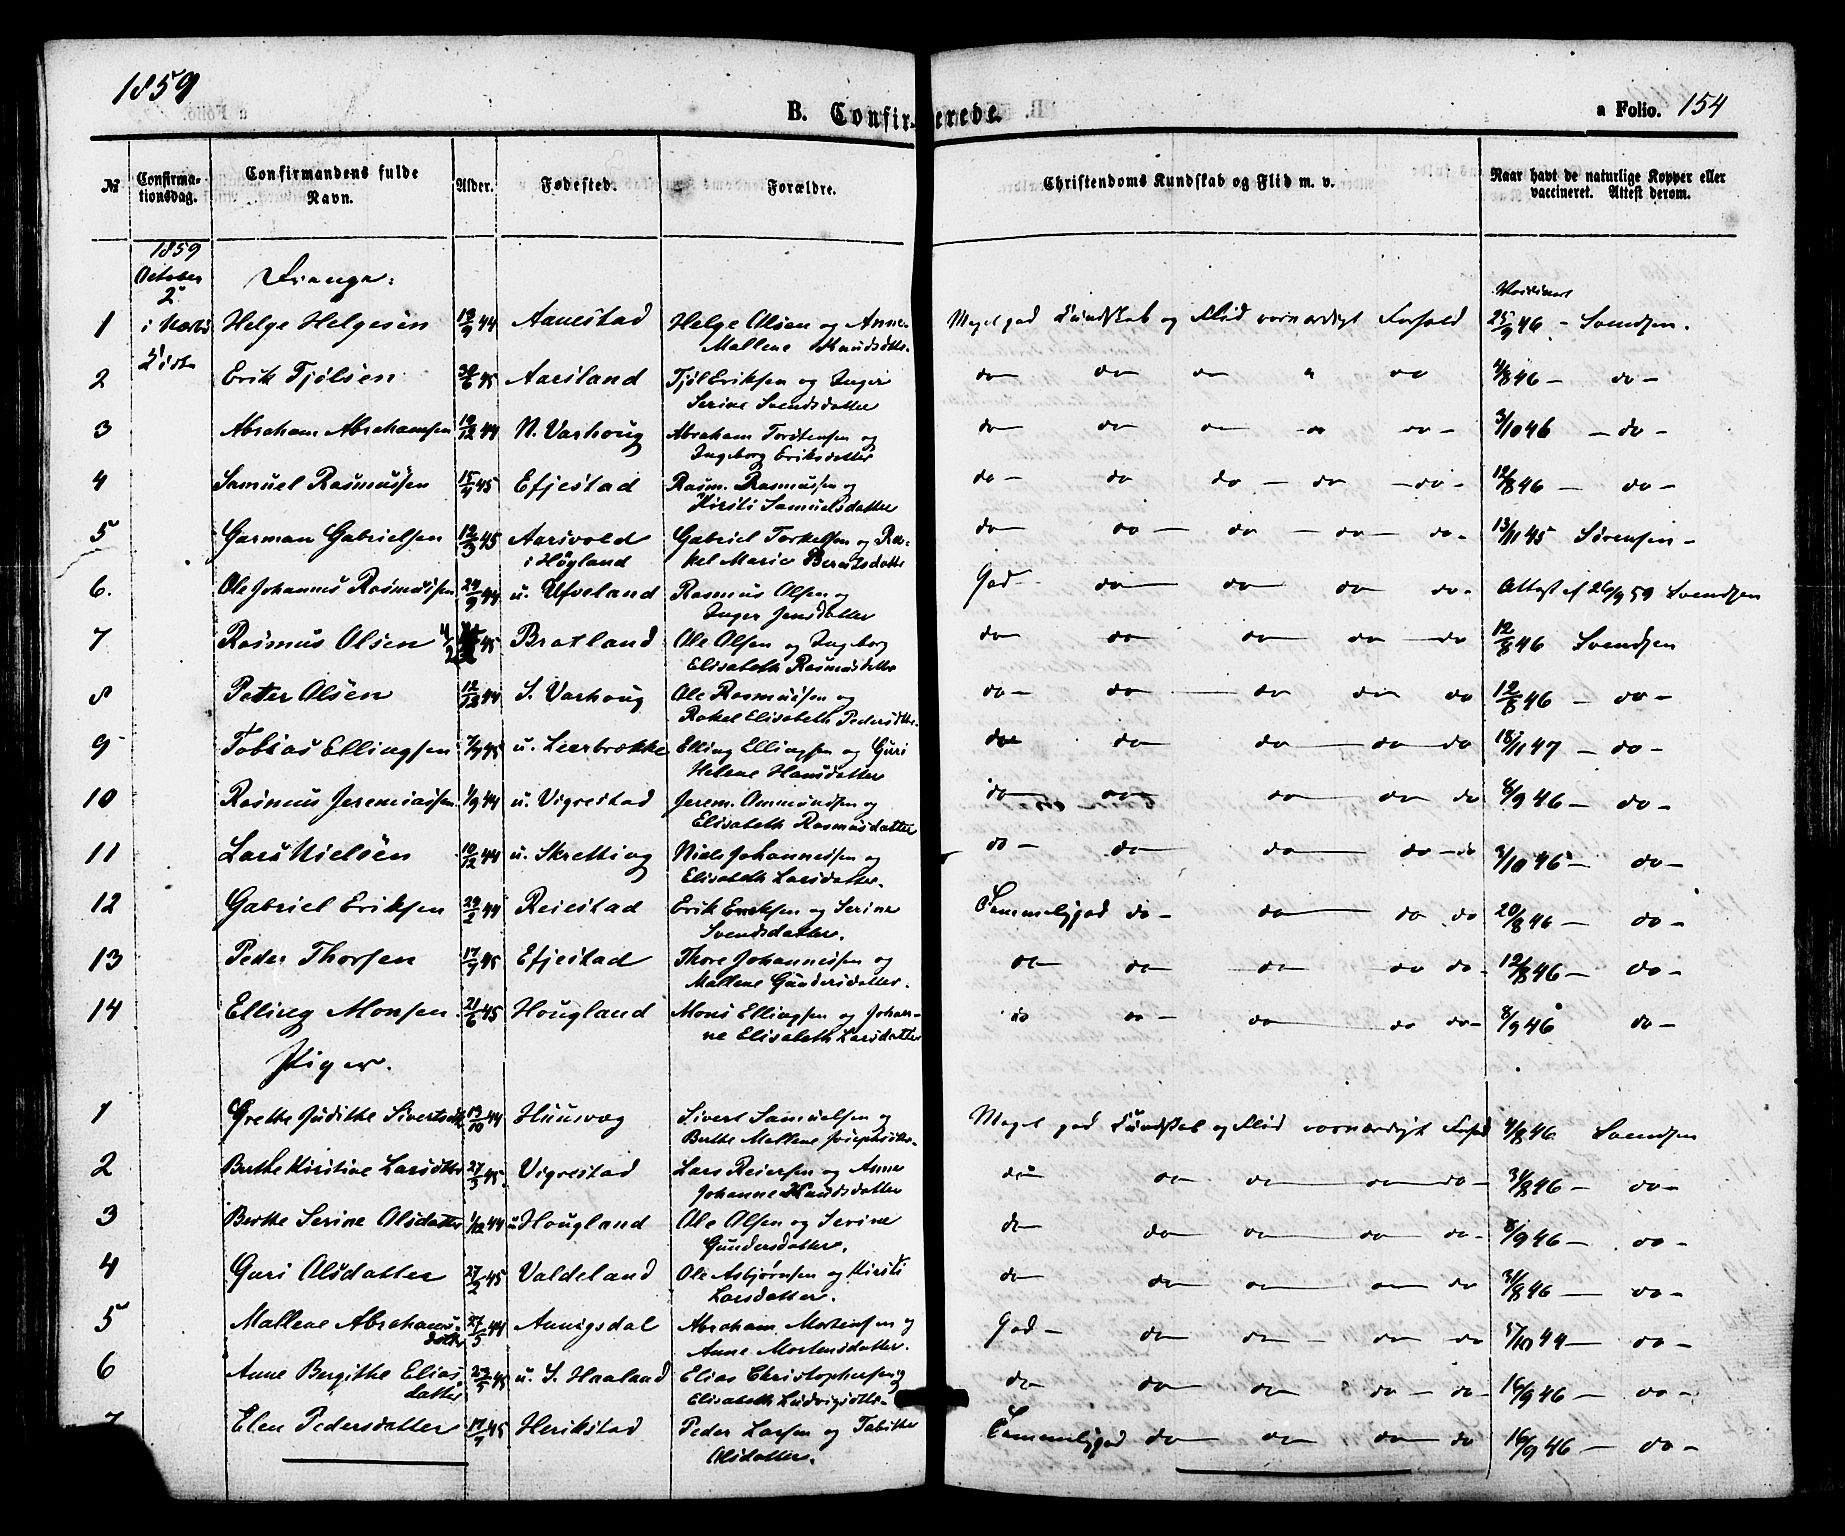 1859
B. Confirmerede.
a Folio. 154
№ Confirmationsdag. Confirmandens fulde Navn. Alder. Fødested. Forældre. Christendoms Kundskab og Flid m. v. Naar havt de naturlige Kopper eller vaccineret. Attest derom.
1859
October
2
Drenge:
1 Helge Helgesen 44 Aanestad Helge Olsen og Anne Meget god Kundskab og Flid værdigt Forhold 25/9 46 - Svendsen.
Mallene Knudsdttr.
2 Erik Tjølsen 45 Aarsland Tjøl Eriksen og Inger do do do " do 4/8 46 - do -
Serine Svendsdatter
3 Abraham Abrahamsen 44 N. Varhoug Abraham Tordtensen og do do do do do - 3/10 46 - do -
Ingeborg Eriksdatter
4 Samuel Rasmussen 15/4 45 Efjestad Rasm. Rasmussen og do - do do - do - do - 12/8 46 - do -
Kirsti Samuelsdatter
5 Garman Gabrielsen 12/3 45 Aarsvold Gabriel Torkelsen og Ra- do do - do - do - do - 13/11 45 Sörensen -
i Högland kel Marie Berntsdatter
6. Ole Johannes Rasmussen 24/9 44 u. Ufveland Rasmus Olsen og God - do do do do - Attest af 26/9 59 Svendsen
Inger Jensdatter
7 Rasmus Olsen 11/2 45 Bratland Ole Olsen og Ingeborg do do do do - do 12/8 46 Svendsen
Elisabeth Rasmusdatter
8 Peter Olsen 12/12 44 S. Varhoug Ole Rasmussen og do - do do do do 12/8 46 - do -
Rakel Elisabeth Pedersdttr.
9 Tobias Ellingsen 7/7 45 u. Leerbrække Elling Ellingsen og Guri do do do do do 18/11 47 - do -
Helene Hansdatter
10 Rasmus Jeremiassen 1/9 44 u. Vigrestad Jerem. Ommundsen og do do do do do 8/9 46 - do -
Elisabeth Rasmusdatter
11 Lars Nielsen 10/12 44 u. Skretting Niels Johannessen og do - do do do - do 3/10 46 - do -
Elisabeth Larsdatter.
12 Gabriel Eriksen 29/2 44 Reiestad Erik Eriksen og Serine Temmelig god do - do do do 20/8 46 - do -
Svendsdatter.
13 Peder Thorsen 45 Efjestad Thore Johannessen og do do do do do - 12/8 46 - do -
Mallene Gundersdatter.
14 Elling Monsen. 21/6 45 Hougland Mons Ellingsen og Johan- do do - do do do - 8/9 46 do -
ne Elisabeth Larsdatter
Piger.
1 Grethe Judithe Sivertsdtt 13/10 44 Huusvæg Sivert Samuelsen og Meget god Kundskab og Flid værdigt Forhold 4/8 46 Svendsen
Berthe Mallene Josephsdttr.
2 Berthe Kirstine Larsdttr 27/3 45. Vigrestad Lars Reiersen og Anne do do do do do - 31/8 46 - do -
Johanne Knudsdatter
3 Berthe Serine Olsdatter 1/12 44 u Hougland Ole Olsen og Serine do do do do do - 8/9 46 - do -
Gundersdatter.
4 Guri Olsdatter 27/2 45 Valdeland Ole Asbjørnsen og Kirsti do do do do do 31/8 46 - do -
Larsdatter.
5 Mallene Abrahams- 27/5 44 Aanigsdal Abraham Mortensen og God - do do - do do 5/10 44 - do -
datter Anne Mortensdatter.
6 Anne Bergithe Elias 45 u. S. Haaland Elias Christophersen og do do do do - do - 16/9 46 - do -
datter Elisabeth Ludvigsdttr.
7 Elen Pedersdatter 45 Herikstad Peder Larsen og Tabithe Temmelig god do do do do 16/9 46 - do -
Olsdatter.